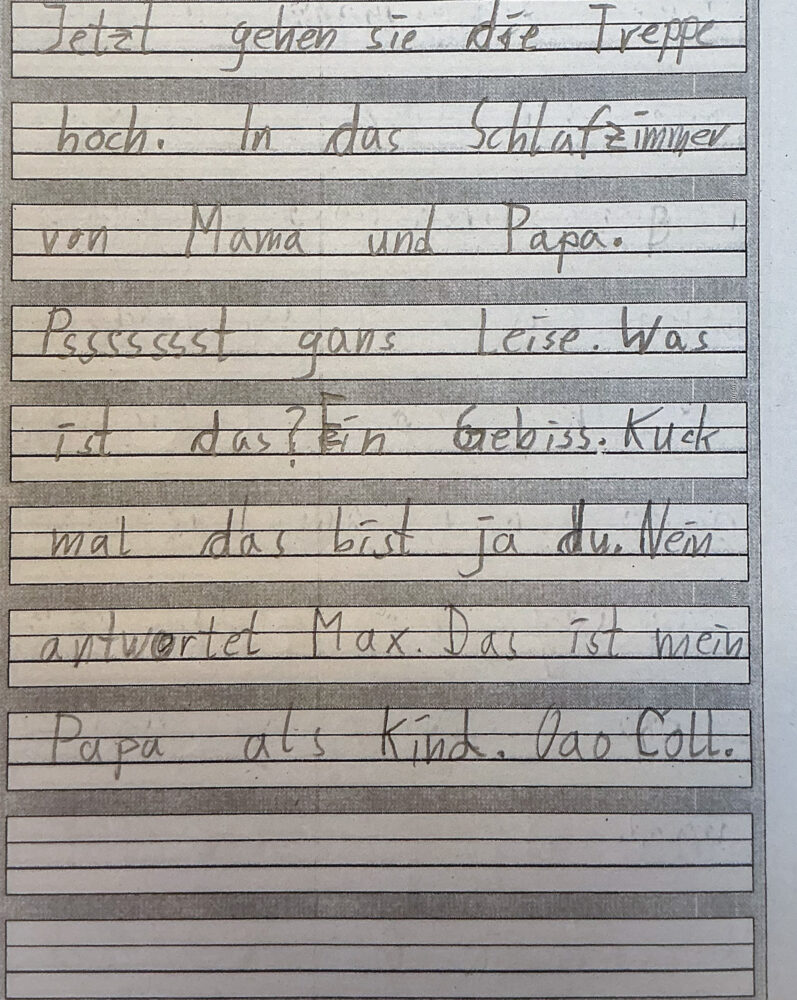 Jetzt gehen sie die Treppe
hoch. In das Schlafzimmer
von Mama und Papa.
Psssssssst gans Leise. Was
ist das? Ein Gebiss. Kuck
mal das bist ja du. Nein
antwortet Max. Das ist mein
Papa als Kind. Oao Coll.